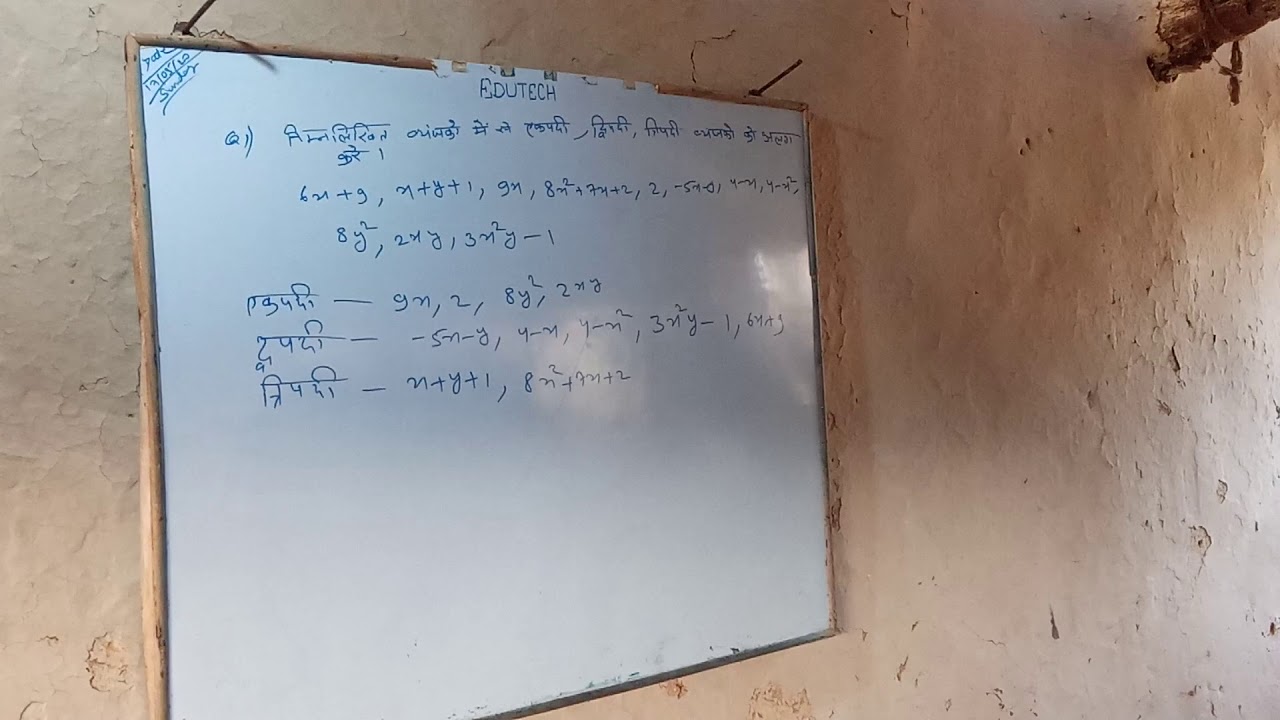 Date
12/08/20
Sunday
EDUTECH
Q1) निम्नलिखित व्यंजको में से एकपदी, द्विपदी, त्रिपदी व्यंजको को अलग
करे।
6x+9, x+y+1, 9x, 8x²+7x+2, 2, -5x-y, 4-x, 4-x²,
8y², 2xy, 3x²y-1
एकपदी — 9x, 2, 8y², 2xy
द्वपदी — -5x-y, 4-x, 4-x², 3x²y-1, 6x+9
त्रिपदी — x+y+1, 8x²+7x+2